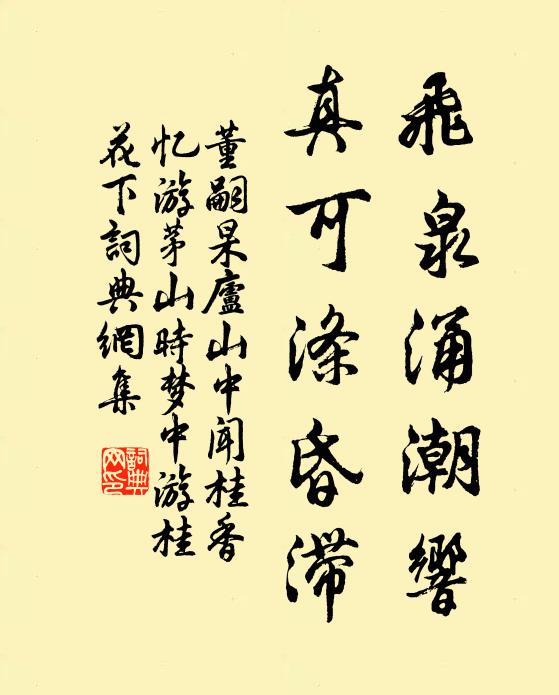 飛泉涌潮響
真可滌昏滯
董嗣杲廬山中闻桂香
忆游茅山時梦中游桂
花下詞典網集
詞典网印